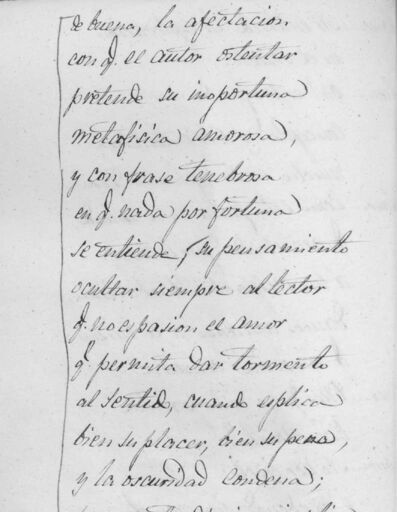 de buena, la afectacion
con q.l el autor ostentar
pretende su inoportuna
metafisica amorosa,
y con frase tenebrosa
en q. nada por fortuna
se entiende, su pensamiento
ocultar siempre al lector
q. no es pasion el amor
q.e permita dar tormento
al sentido, cuando esplica
bien su placer, bien su pena,
y la oscuridad condena;